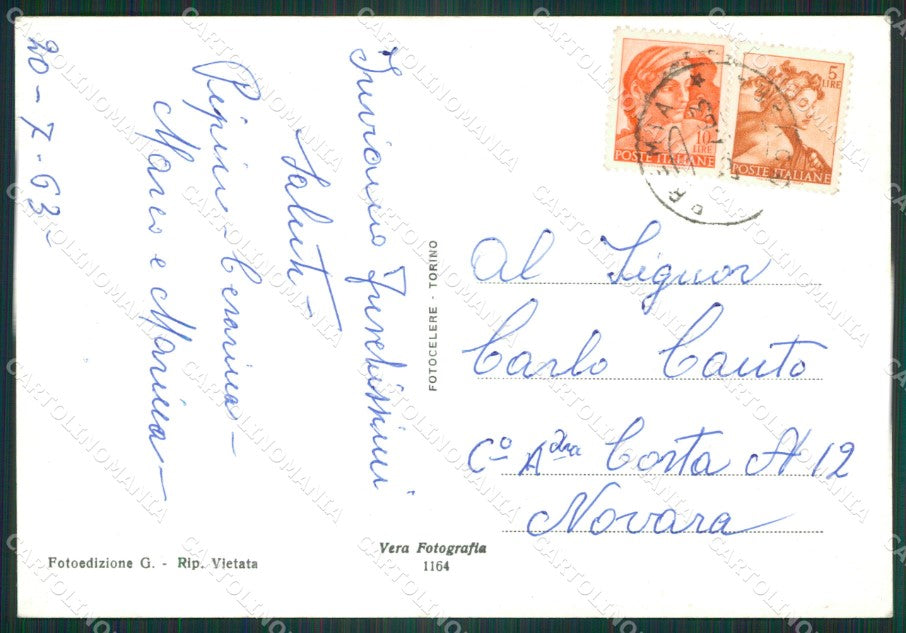 20-7-63
Inviamo
Saluti -
Pepino - Cesarina -
Marco e Marina -
Al Signor
Carlo Cauto
Cº Adra Costa N 12
Novara
10
LIRE
POSTE ITALIANE
5
LIRE
POSTE ITALIANE
FOTOCELERE - TORINO
Vera Fotografia
1164
Fotoedizione G. - Rip. Vietata
CARTOLINOMANIA